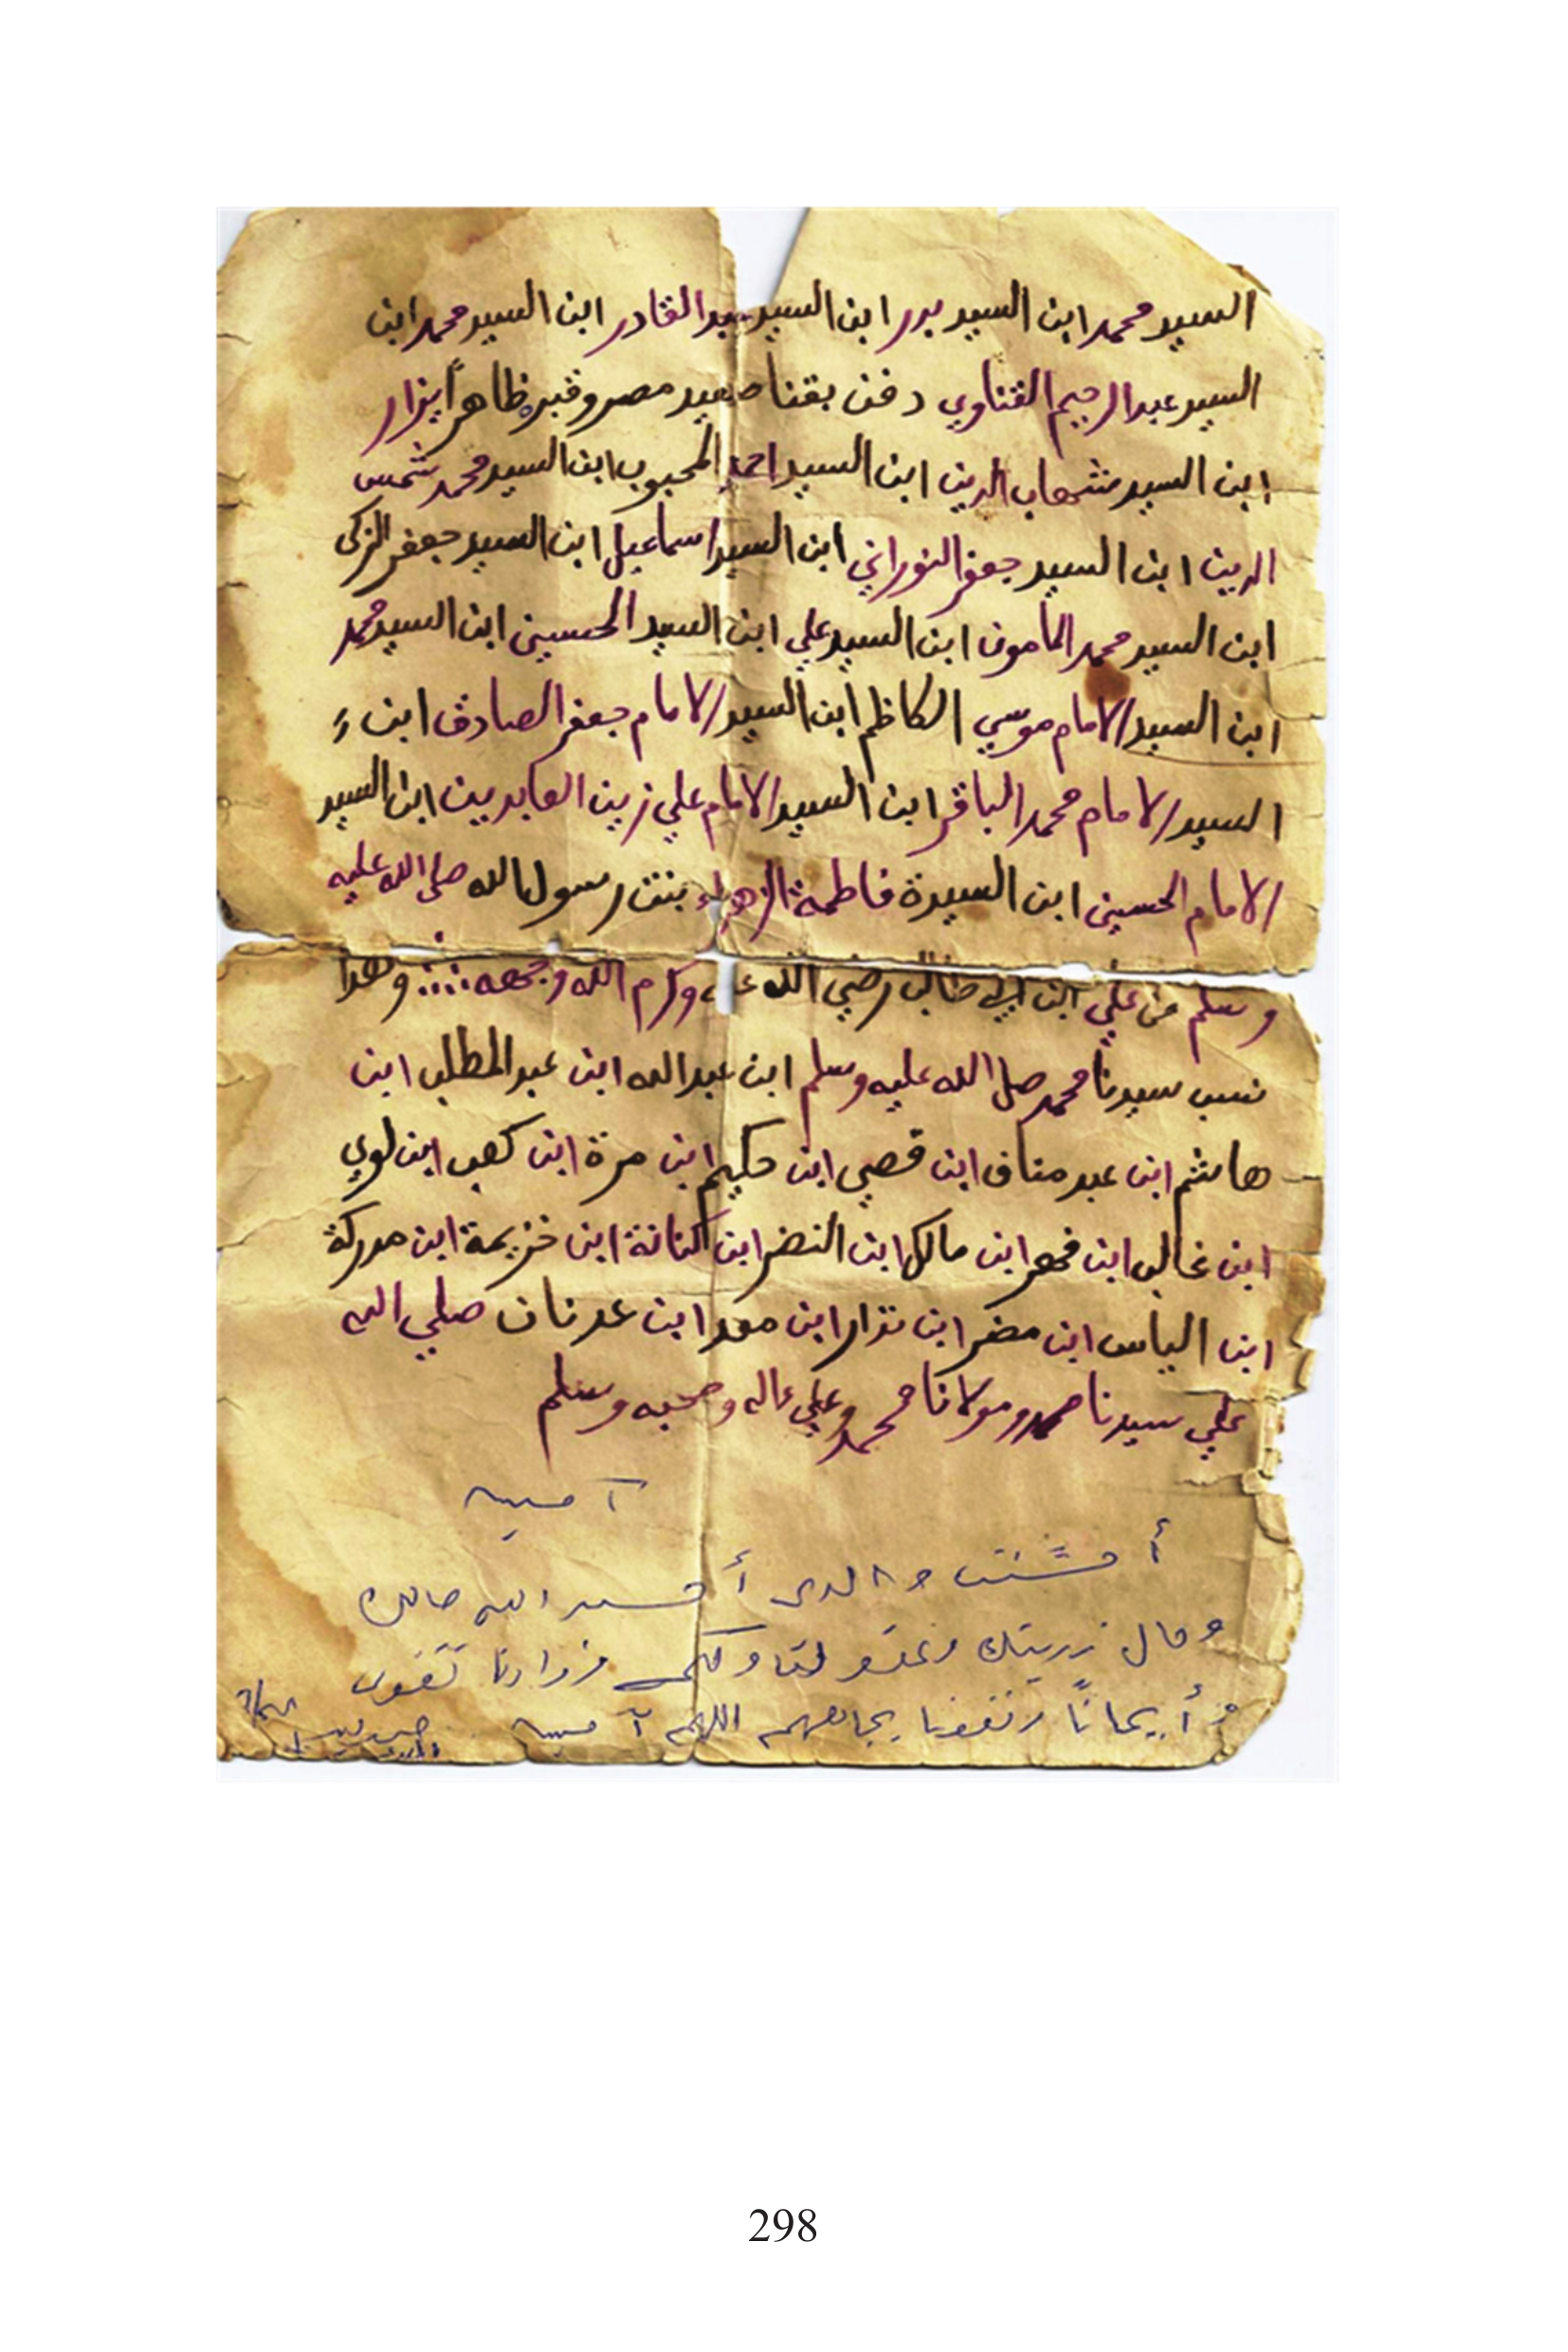 السيد محمد ابن السيد بدر ابن السيد عبد القادر ابن السيد محمد ابن
السيد عبد الرحيم القناوي دفن بقنا صعيد مصر وقبره ظاهراً يزار
ابن السيد شهاب الدين ابن السيد احمد المحبوب ابن السيد محمد شمس
الدين ابن السيد جعفر النوراني ابن السيد اسماعيل ابن السيد جعفر الزكى
ابن السيد محمد المأمون ابن السيد علي ابن السيد الحسين ابن السيد محمد
ابن السيد الامام موسي الكاظم ابن السيد الامام جعفر الصادق ابن
السيد الامام محمد الباقر ابن السيد الامام علي زين العابدين ابن السيد
الامام الحسين ابن السيدة فاطمة الزهراء بنت رسول الله صلي الله عليه
وسلم من علي ابن ابي طالب رضي الله عنه وكرم الله وجهه :::: وهذا
نسب سيدنا محمد صل الله عليه وسلم ابن عبدالله ابن عبد المطلب ابن
هاشم ابن عبد مناف ابن قصي ابن حكيم ابن مرة ابن كعب ابن لوي
ابن غالب ابن فهر ابن مالك ابن النضر ابن كنانة ابن خزيمة ابن مدركة
ابن الياس ابن مضر ابن نزار ابن معد ابن عدنان صلي الله
علي سيدنا محمد ومولانا محمد وعلي ءاله وصحبه وسلم
آمين
أحسنت والدى أحسن الله حالك
وحال زريتك وزادنا
أيماناً ونفعنا بجاههم اللهم آمين
298